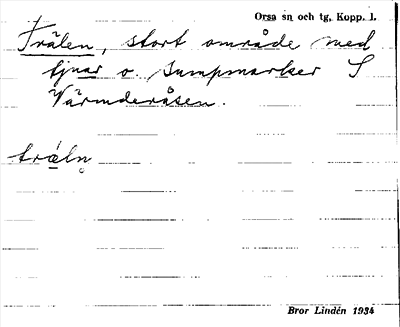 Orsa sn och tg, Kopp. l.
Trälen, stort område med
tjnar o. sumpmarker S
Värmderåsen.
träln̥
Bror Lindén 1934